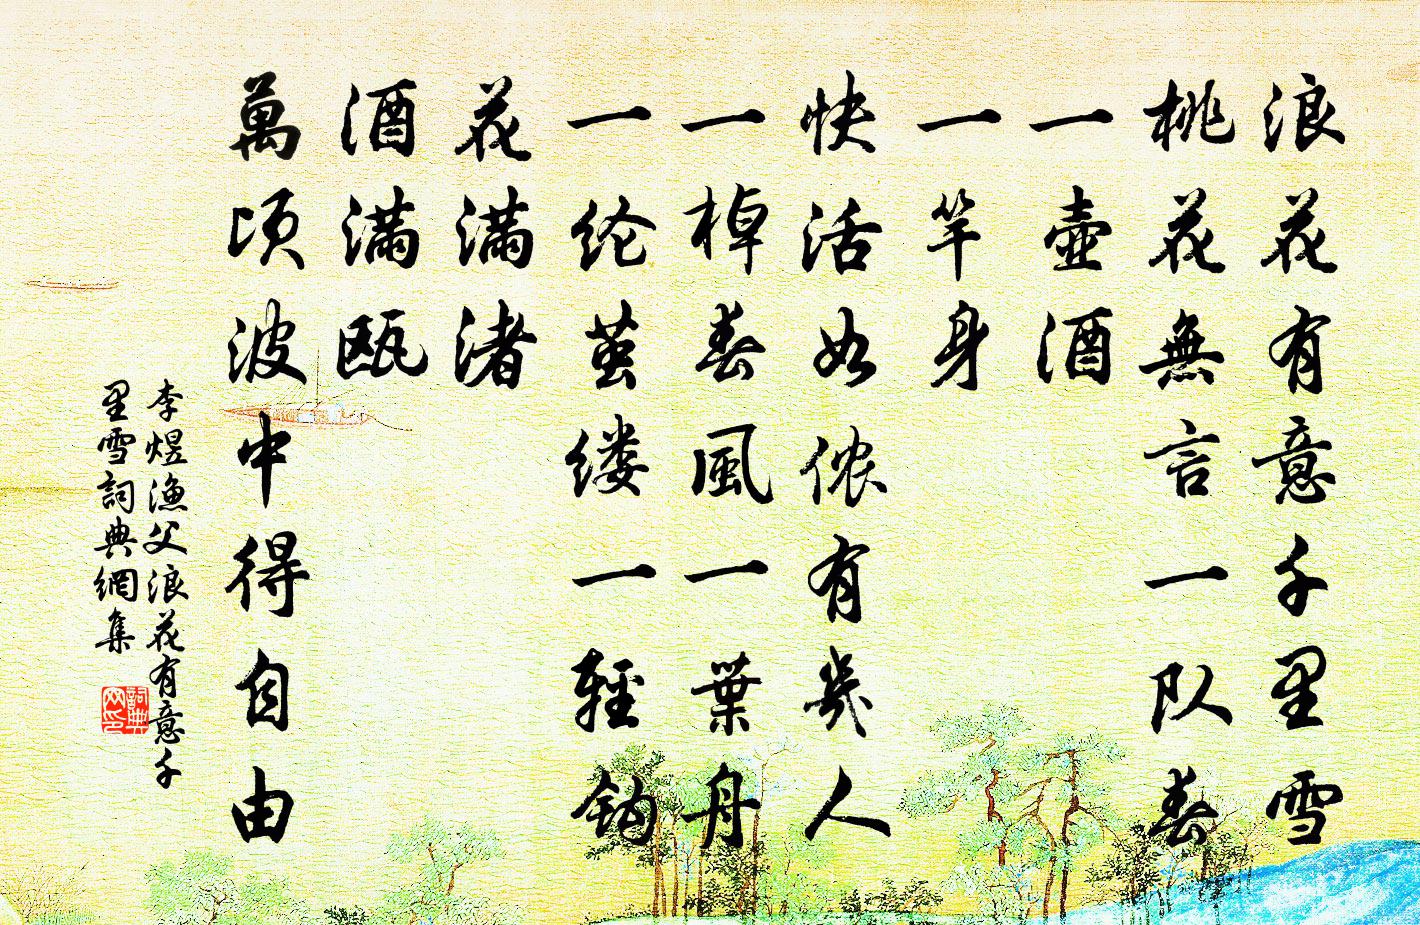 浪花有意千里雪
桃花無言一队春
一壺酒
一竿身
快活如侬有幾人
一棹春風一葉舟
一纶茧缕一輕鈎
花滿渚
酒滿瓯
萬顷波中得自由
李煜漁父浪花有意千
里雪詞典網集
詞典
网印